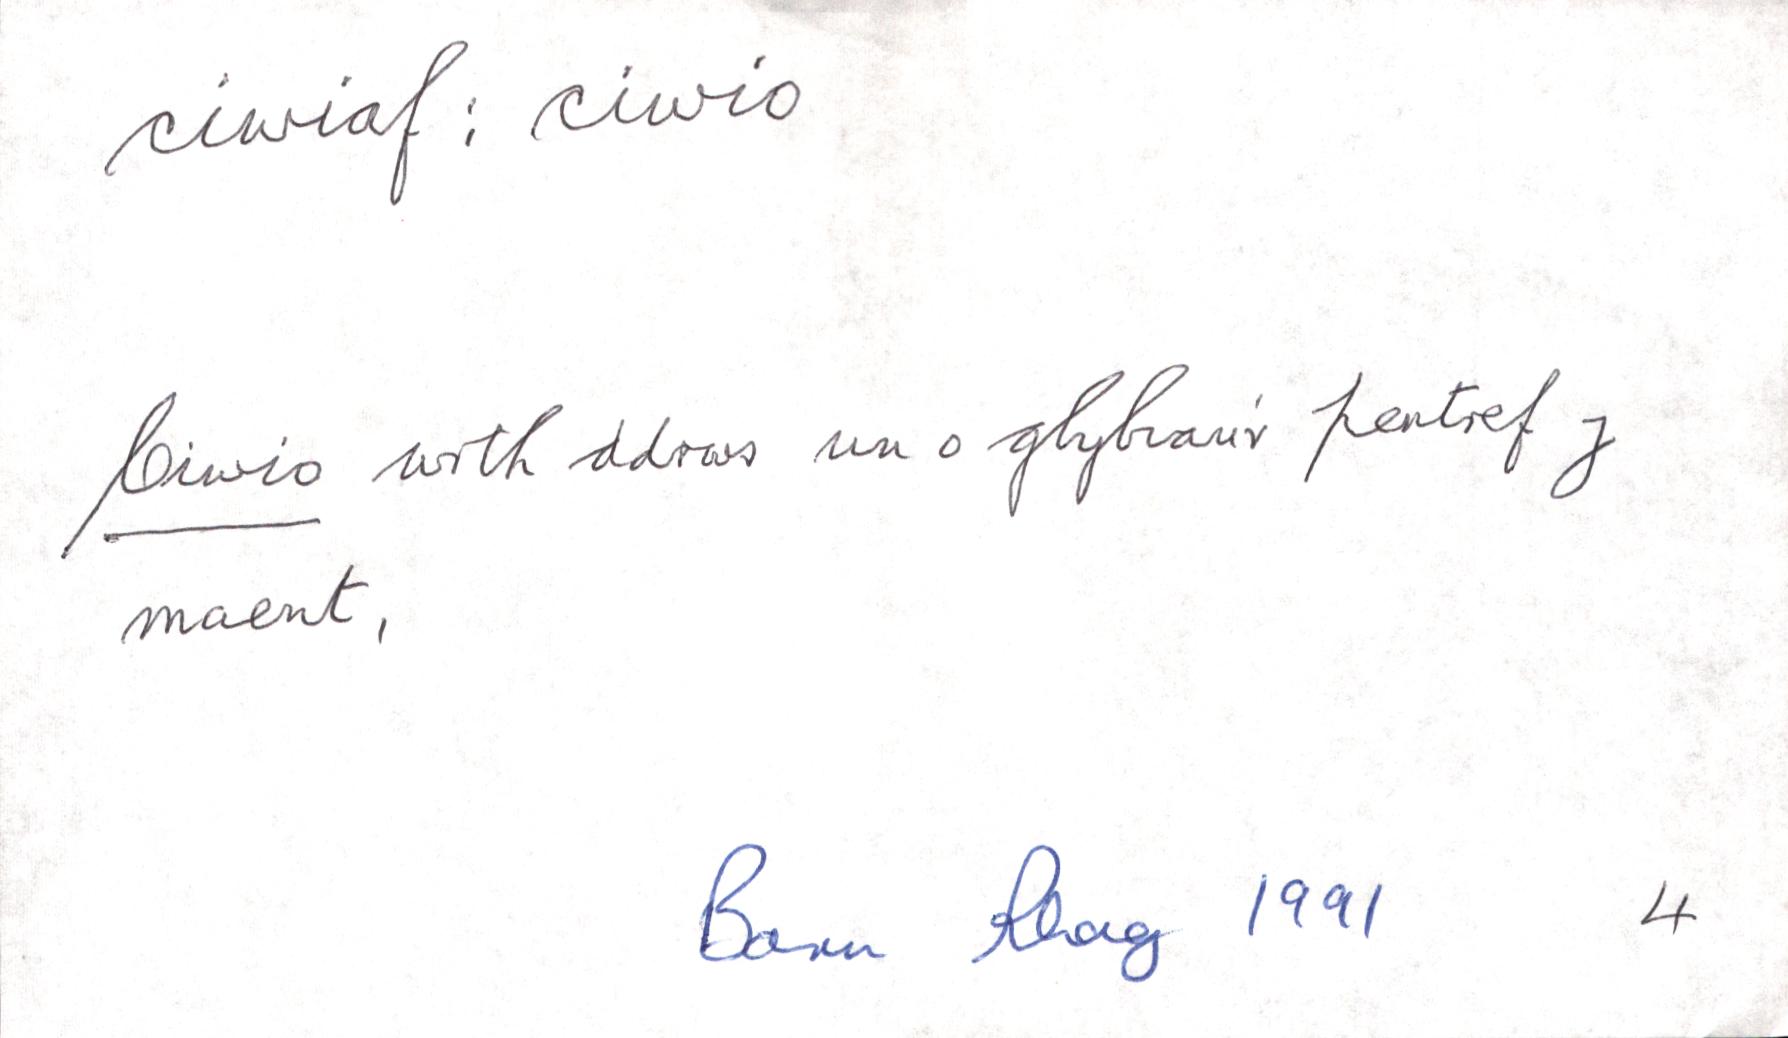 ciwiaf: ciwio
Ciwio wrth ddrws un o glybiau'r pentref y
maent,
Barn Rhag 1991 4